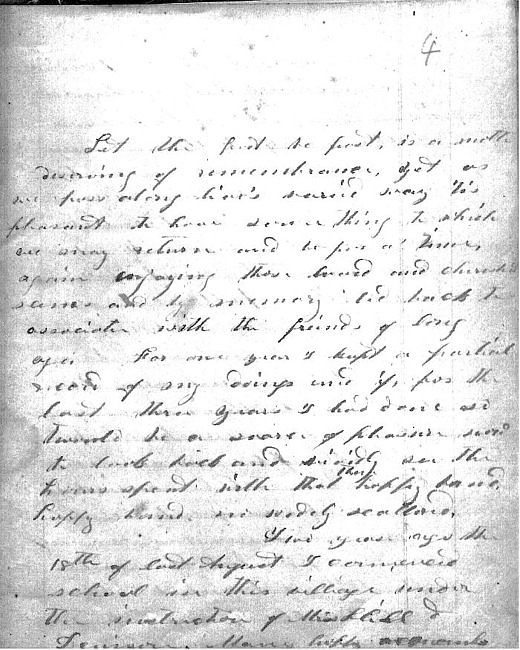 4
Let the past be past, is a motto
deserving of remembrance, yet as
we pass along time's varied way 'tis
pleasant to have some thing to which
we may return and be for a time,
again enjoying those loved and cherished
scenes and by memory led back to
associate with the friends of long
ago. For one year I kept a partial
record of my doings and if, for the
last three years I had done so
twould be a source of pleasure now
to look back and vividly see the
hours spent with that happy band,
that
happy band, so widely scattered,
Five years ago the
18th of last August I commenced
school in this village under
the instruction of Miss Hill &
Denison. Many happy moments